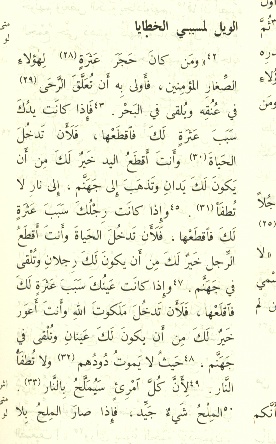 الويل لمسببي الخطايا
٤٢«ومَن كانَ حَجَرَ عَثرَةٍ (٢٨) لِهٰؤلاءِ
الصِّغارِ المُؤمِنين، فأَولى بِه أَن تُعَلَّقَ الرَّحَى (٢٩)
في عُنُقِه ويُلقى في البَحْر. ٤٣فإِذا كانت يدُكَ
سَبَبَ عَثرَةٍ لَكَ فاقطَعْها، فلَأَن تَدخُلَ
الحياةَ (٣٠) وأَنتَ أَقطَعُ اليد خَيرٌ لَكَ مِن أَن
يَكونَ لَكَ يَدانِ وتَذهَبَ إِلى جَهَنَّم، إِلى نارٍ لا
تُطفأ (٣١). ٤٥وإِذا كانَت رِجْلُكَ سَبَبَ عَثرَةٍ
لَكَ فاقطَعْها، فَلَأَن تَدخُلَ الحَياةَ وأَنتَ أَقطَعُ
الرِّجلِ خَيرٌ لَكَ مِن أَن يكونَ لَكَ رِجلانِ وتُلْقى
في جَهَنَّم. ٤٧وإِذا كانت عَينُكَ سَبَبَ عَثرَةٍ لَكَ
فاقلَعْها، فَلَأَن تَدخُلَ مَلَكوتَ اللهِ وأَنتَ أَعوَرُ
خَيرٌ لكَ مِن أَن يكونَ لَكَ عَينانِ وتُلْقى في
جَهَنَّم. ٤٨حَيثُ لا يَموتُ دُودُهم (٣٢) ولا تُطفَأُ
النَّار. ٤٩لِأَنَّ كُلَّ ٱمرِئٍ سَيُمَلَّحُ بِالنَّار (٣٣).
٥٠المِلْحُ شَيءٌ جَيِّد، فإِذا صارَ المِلحُ بِلا